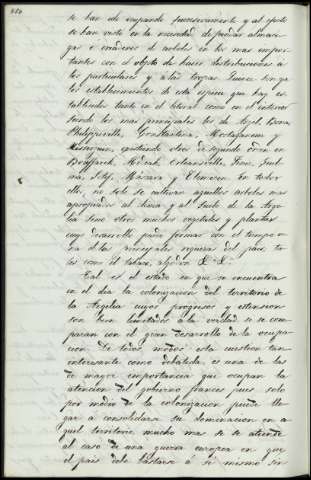 se han de ocupando sucesivamente y al efecto
se han visto en la necesidad de fundar almaci-
gas o criaderos de arboles en los mas impor-
tantes con el objeto de hacer distribuciones a
los particulares y a las tropas. Quince son ya
los establecimientos de esta especie que hay es-
tablecidos tanto en el litoral como en el interior
siendo los mas principales los de Argel, Bona,
Philippeville, Constantina, Mostaganem y
existiendo otros de segundo orden en
Bouffarick, Medeah, Orleansville,
Setif, Mascara y Tlemecen. En todos
ellos, no solo se cultivan aquellos arboles mas
apropiados al clima y al suelo de la Arge-
lia sino otros muchos vegetales y plantas
cuyo desarrollo puede formar con el tiempo u-
na de las principales riquezas del pais, ta-
les como el tabaco, algodon &. &.
Tal es el estado en que se encuentra
en el dia la colonizacion del territorio de
la Argelia cuyos progresos y estension
son bien limitados a la verdad si se com-
paran con el gran desarrollo de la ocupa-
cion. De todos modos esta cuestion tan
interesante como debatida, es una de las
de mayor importancia que ocupan la
atencion del gobierno frances pues solo
por medio de la colonizacion puede lle-
gar a consolidarse su dominacion en a-
quel territorio mucho mas si se atiende
al caso de una guerra europea en que
el pais debe bastarse a si mismo sin